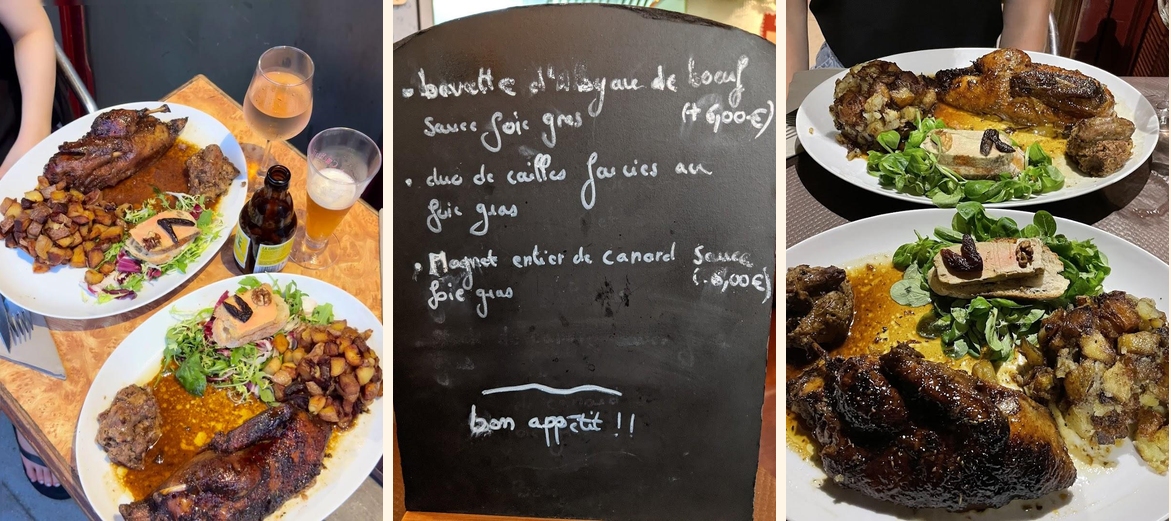 • bavette d'Aloyau de boeuf
sauce foie gras (+ 6,00€)
• duo de cailles farcies au
foie gras
• Magret entier de canard sauce
foie gras (+ 6,00€)
bon appétit !!